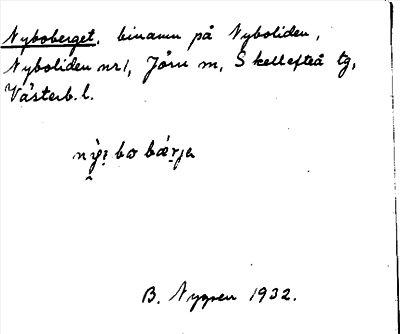 Nyboberget, binamn på Nyboliden,
Nyboliden nr 1, Jörn sn, Skellefteå tg,
Västerb. l.
B. Nygren 1932.